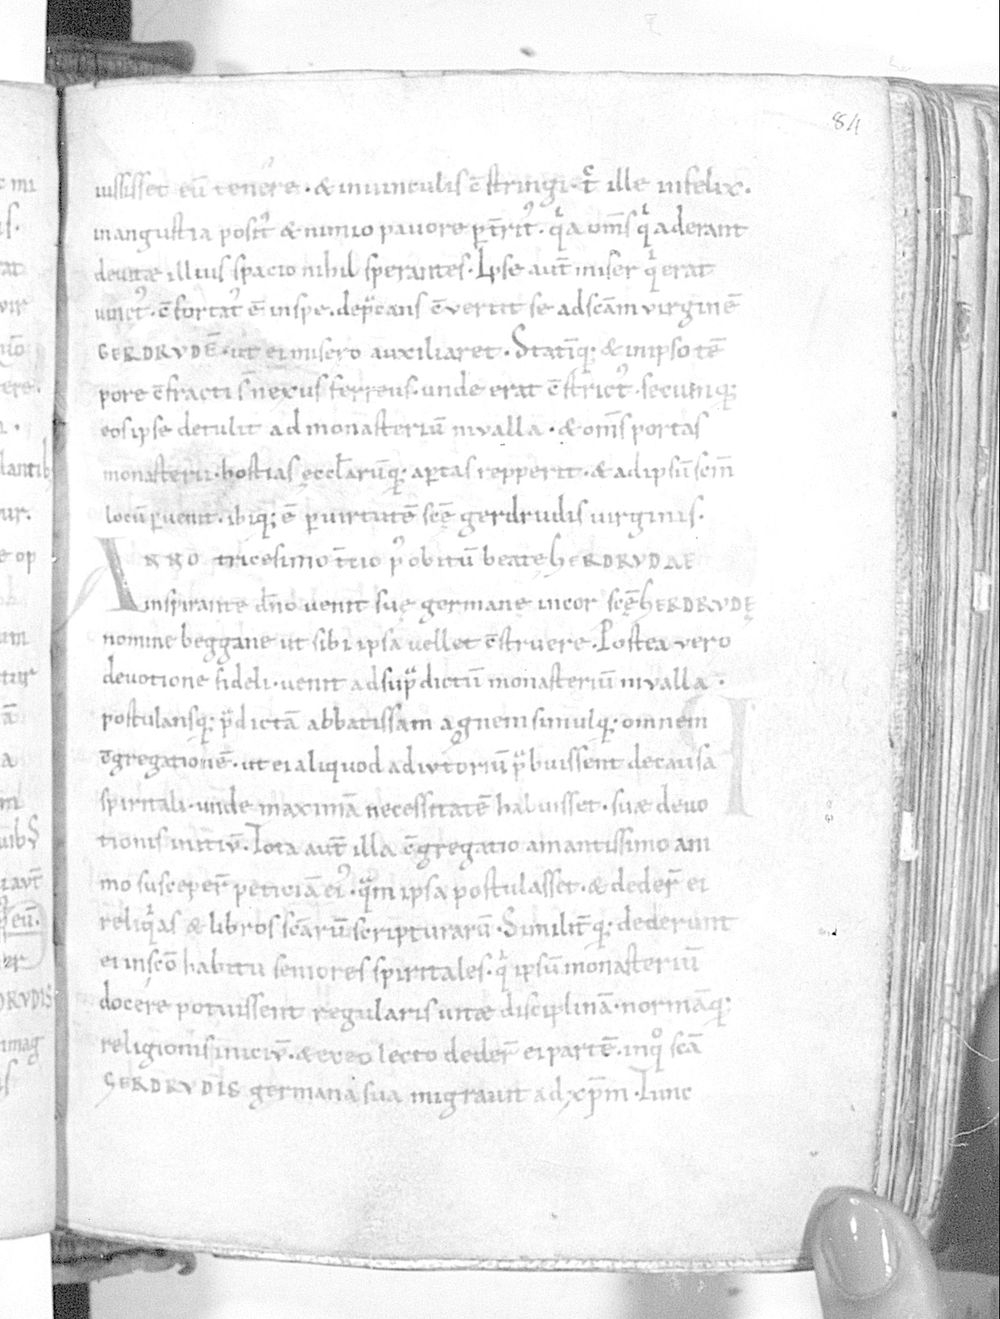 84
iussisset eū tenere · & inuinculis c̄stringi · t̄c ille infelix.
inangustia posit᾽ & nimio pauore p̄t̄rit᾽ · qͥa om̄s qͥ aderant
deuitæ illius spacio nihil sperantes · Ipse aut̄ miser qͥ erat
uinct᾽ · c̄fortat᾽ ē inspe · dep̄cans c̄vertit se adsc̄am virginē
GERDRVDĒ · ut ei misero auxiliaret · Statīq; & inipso tē
pore c̄fracti s̄ nexus ferreus · unde erat c̄strict᾽ · secumq;
eos ipse detulit ad monasteriū nivalla · & om̄s portas
monasterii · hostias ęccl̄arūq; ap̄tas repperit · & adipsū sc̄m
locū p̄uenit · ibiq; ē p̄ uirtutē sc̄ę gerdrudis uirginis ·
ANNO tricesimo t̄tio p᾽ obitū beate GERDRVDAE
inspirante dn̄o uenit suę germane incor sc̄ę GERDRVDĘ
nomine beggane ut sibi ipsa uellet c̄struere · Postea vero
devotione fideli · uenit adsup̄dictū monasteriū nivalla ·
postulansq; p̄dictā abbatissam agnem simulq; omnem
c̄gregationē · ut ei aliquod adiutoriū p̄buissent decausa
spiritali · unde maximā necessitatē habuisset · suæ devo
tionis initiū · Tota aut̄ illa c̄gregatio amantissimo ani
mo susceper̄ peticiā ei᾽ · qͣm ipsa postulasset · & deder̄ ei
reliqͥas & libros sc̄arū scripturarū · Similit̄q; dederunt
ei insc̄o habitu seniores spiritales · qͥ ipsū monasteriū
docere potuissent regularis uitæ disciplinā · normāq;
religionis iniciū · & eveo lecto deder̄ ei partē · inqͦ sc̄a
GERDRVDIS germana sua migrauit ad xp̄m · Tunc